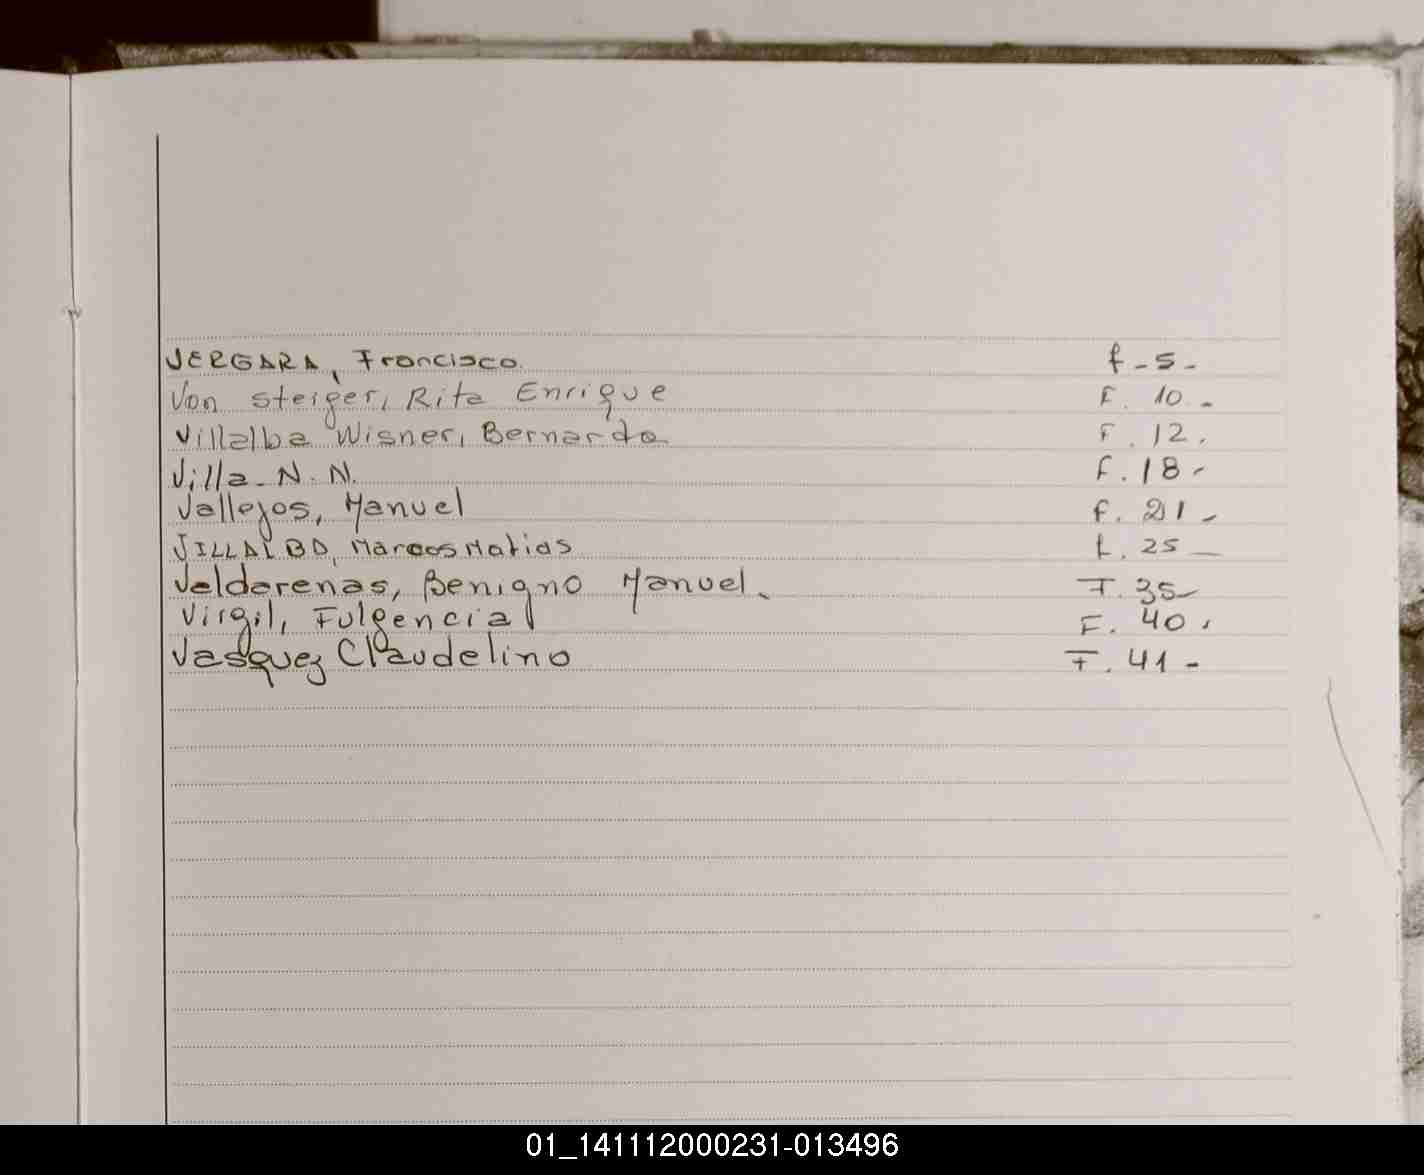 VERGARA, Francisco. f-5-
Von Steiger, Rita Enrique F. 10.-
Villalba Wisner, Bernardo F. 12.
Villa N. N. F. 18-
Vallejos, Manuel F. 21-
VILLALBO, Marcos Matias f. 25-
Valdarenas, Benigno Manuel. F. 35-
Virgil, Fulgencia F. 40.
Vasquez Claudelino F. 41-
01_141112000231-013496